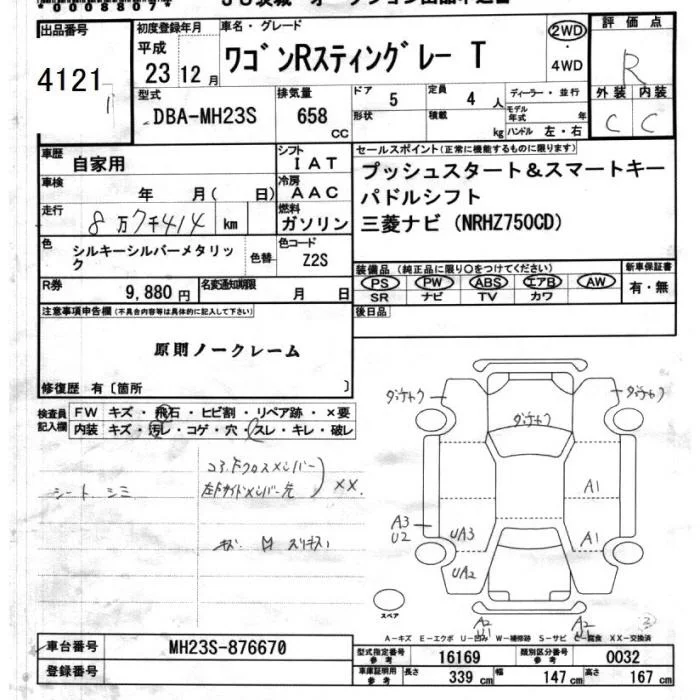 出品番号 4121
初度登録年月 平成 23年 12月
車名・グレード ワゴンRスティングレー T
2WD・4WD
評価点 R
外装 内装
C C
型式 DBA-MH23S
排気量 658 CC
ドア 5
定員 4 人
形状
積載 kg
ディーラー・並行
モデル年式 年
ハンドル 左・右
車歴 自家用
シフト IAT
車検 年 月( 日)
冷房 AAC
走行 8万7千414 km
燃料 ガソリン
色 シルキーシルバーメタリック
色替
色コード Z2S
R券 9,880円
名変通知期限 月 日
セールスポイント(正常に機能するものに限ります)
プッシュスタート&スマートキー
パドルシフト
三菱ナビ (NRHZ750CD)
装備品 (純正品に限り○をつけてください)
PS PW ABS エアB AW
SR ナビ TV カワ
新車保証書
有・無
後日品
注意事項申告欄(不具合内容等は具体的に記入して下さい)
原則ノークレーム
修復歴 有〔箇所 〕
検査員記入欄
FW キズ・飛石・ヒビ割・リペア跡・×要
内装 キズ・汚レ・コゲ・穴・スレ・キレ・破レ
シート シミ
コアド クロスメンバー
左Fサイドメンバー先
XX
ダッチャク
ダッチャク
ダッチャク
A1
A1
A3
U2
UA3
UA2
A2
A2
スペア
A-キズ E-エクボ U-凹み W-補修跡 S-サビ C-腐食 XX-交換済
車台番号 MH23S-876670
登録番号
型式指定番号 参考 16169
類別区分番号 参考 0032
車庫証明用 参考 長さ 339 cm 幅 147 cm 高さ 167 cm